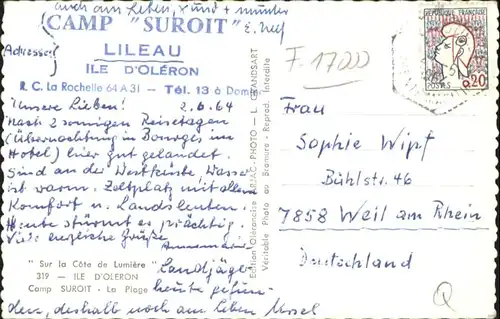 auch am Leben, rund + munter
CAMP "SUROIT"
(Adresse!)
LILEAU
ILE D'OLÉRON
R. C. La Rochelle 64 A 31 — Tél. 13 à Domi
Unsere Lieben! 2.6.64
Nach 2 sonnigen Reisetagen
(Übernachtung in Bourges im
Hotel) hier gut gelandet.
Sind an der Westküste, Wasser
ist warm. Zeltplatz mit allem
Komfort u. Landsleuten.
Heute stürmt es prächtig.
Viele herzliche Grüße
Annemarie
"Sur la Côte de Lumière"
319 — ILE D'OLERON
Camp SUROIT - La Plage
Landjäger
heute gefun-
den, deshalb noch am Leben
Edition Oléronaise ARJAC-PHOTO — L. GRANDSART
Véritable Photo au Bromure - Reprod. Interdite
F. 17000
POSTES 0,20
Frau
Sophie Wipf
Bühlstr. 46
7858 Weil am Rhein
Deutschland
Q